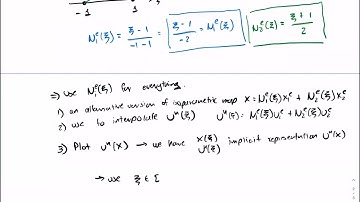 -1 1
N₁ᵉ(ξ) = (ξ - 1)/(-1-1) = (ξ - 1)/(-2) = N₁ᵉ(ξ) N₂ᵉ(ξ) = (ξ + 1)/2
⇒ use Nᵢᵉ(ξ) for everything.
1) an alternative version of isoparametric map x = N₁ᵉ(ξ)x₁ᵉ + N₂ᵉ(ξ)x₂ᵉ
2) use to interpolate Uᴺ(ξ) Uᴺ(ξ) = N₁ᵉ(ξ)U₁ᵉ + N₂ᵉ(ξ)U₂ᵉ
3) Plot Uᴺ(x) → we have x(ξ) Uᴺ(ξ) implicit representation Uᴺ(x)
→ use ξ ∈ [